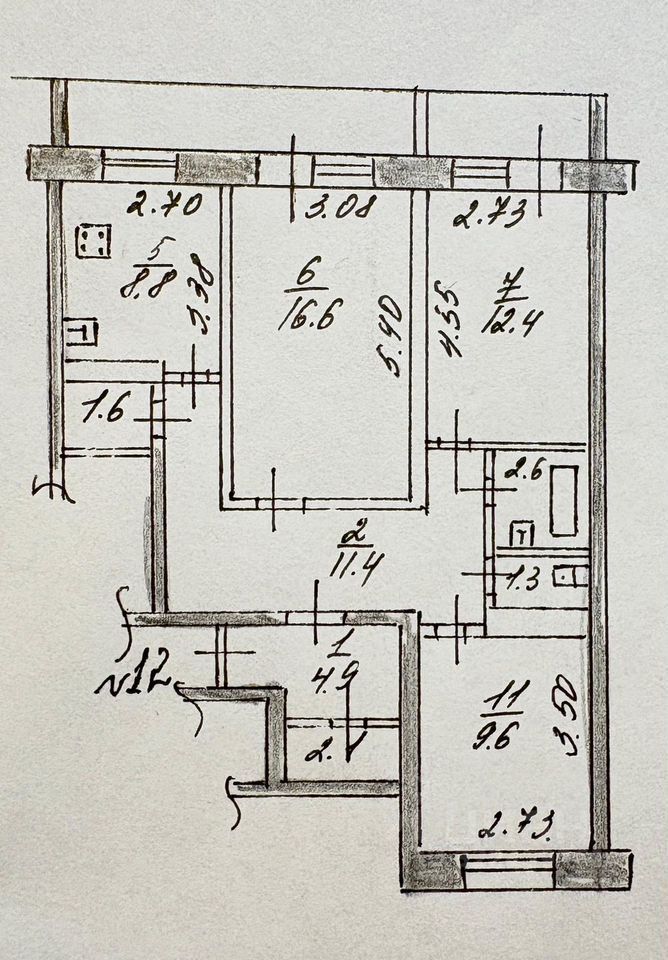 2.70
3.08
2.73
5
8.8
3.38
6
16.6
5.40
4.55
7
12.4
1.6
2.6
T
T
2
11.4
1.3
1
4.9
N12
2.1
11
9.6
3.50
2.73